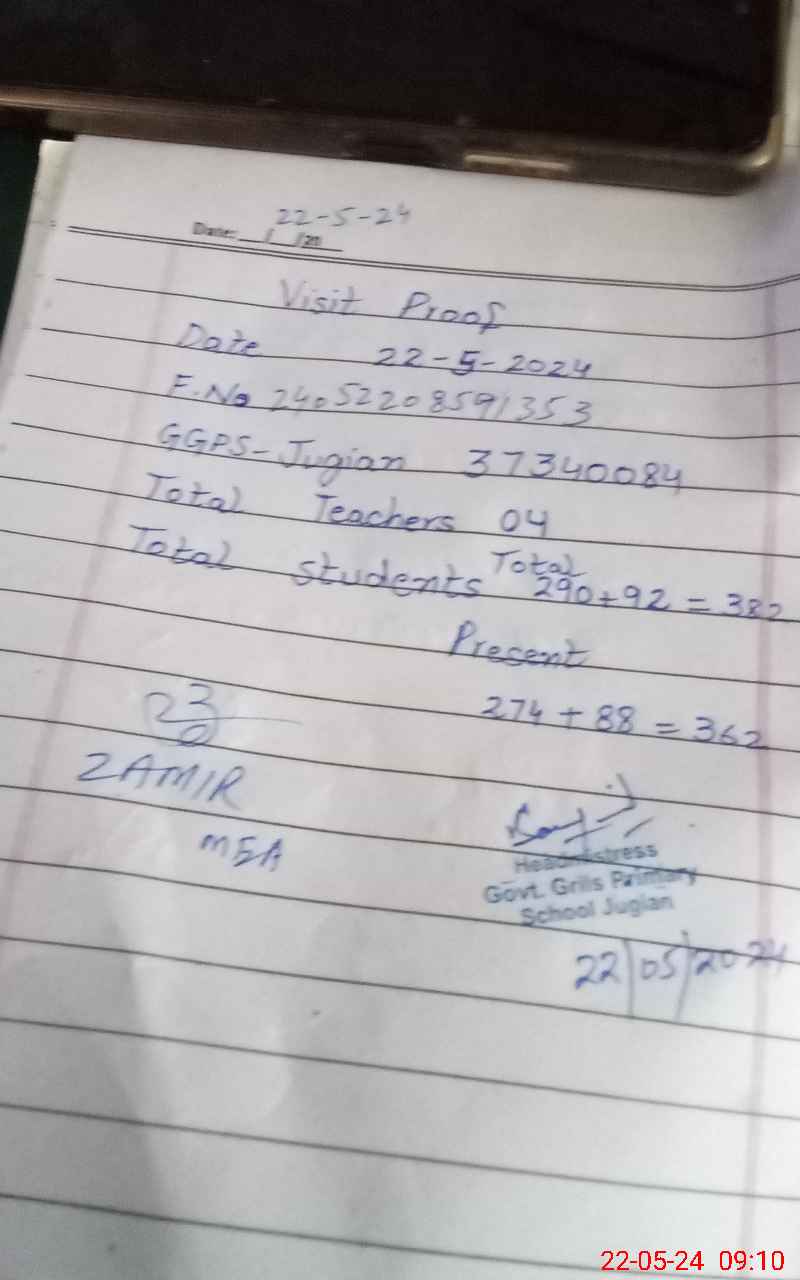 22-5-24
Date: __/__/20
Visit Proof
Date 22-5-2024
F.No 24052208591353
GGPS-Jugian 37340084
Total Teachers 04
Total students Total 290+92=382
Present
274+88=362
ZAMIR
MEA
Headmistress
Govt. Grils Primary
School Jugian
22/05/2024
22-05-24 09:10